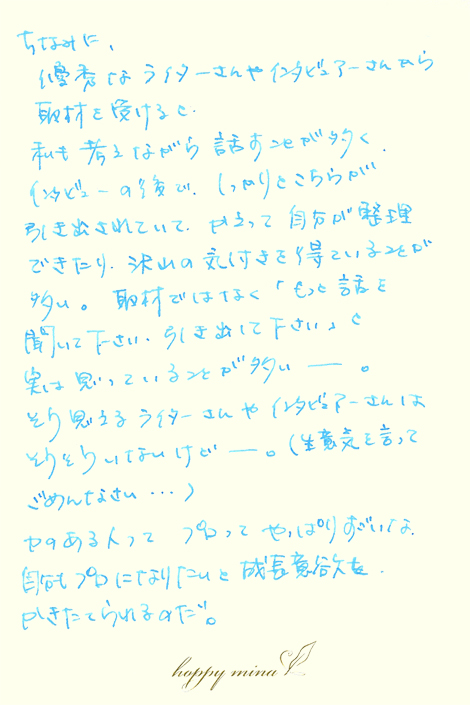 ちなみに、
優秀なライターさんやインタビュアーさんから
取材を受けると、
私も考えながら話すことが多く、
インタビューの後で、しっかりとこちらが
引き出されていて、かえって自分が整理
できたり、沢山の気付きを得ていることが
多い。取材ではなく「もっと話を
聞いて下さい・引き出して下さい」と
実は思っていることが多い――。
そう思えるライターさんやインタビュアーさんは
そうそういないけど――。(生意気を言って
ごめんなさい・・・)
力のある人って プロって やっぱりすごいな、
自分もプロになりたいと成長意欲を、
かきたてられるのだ。
happy mina